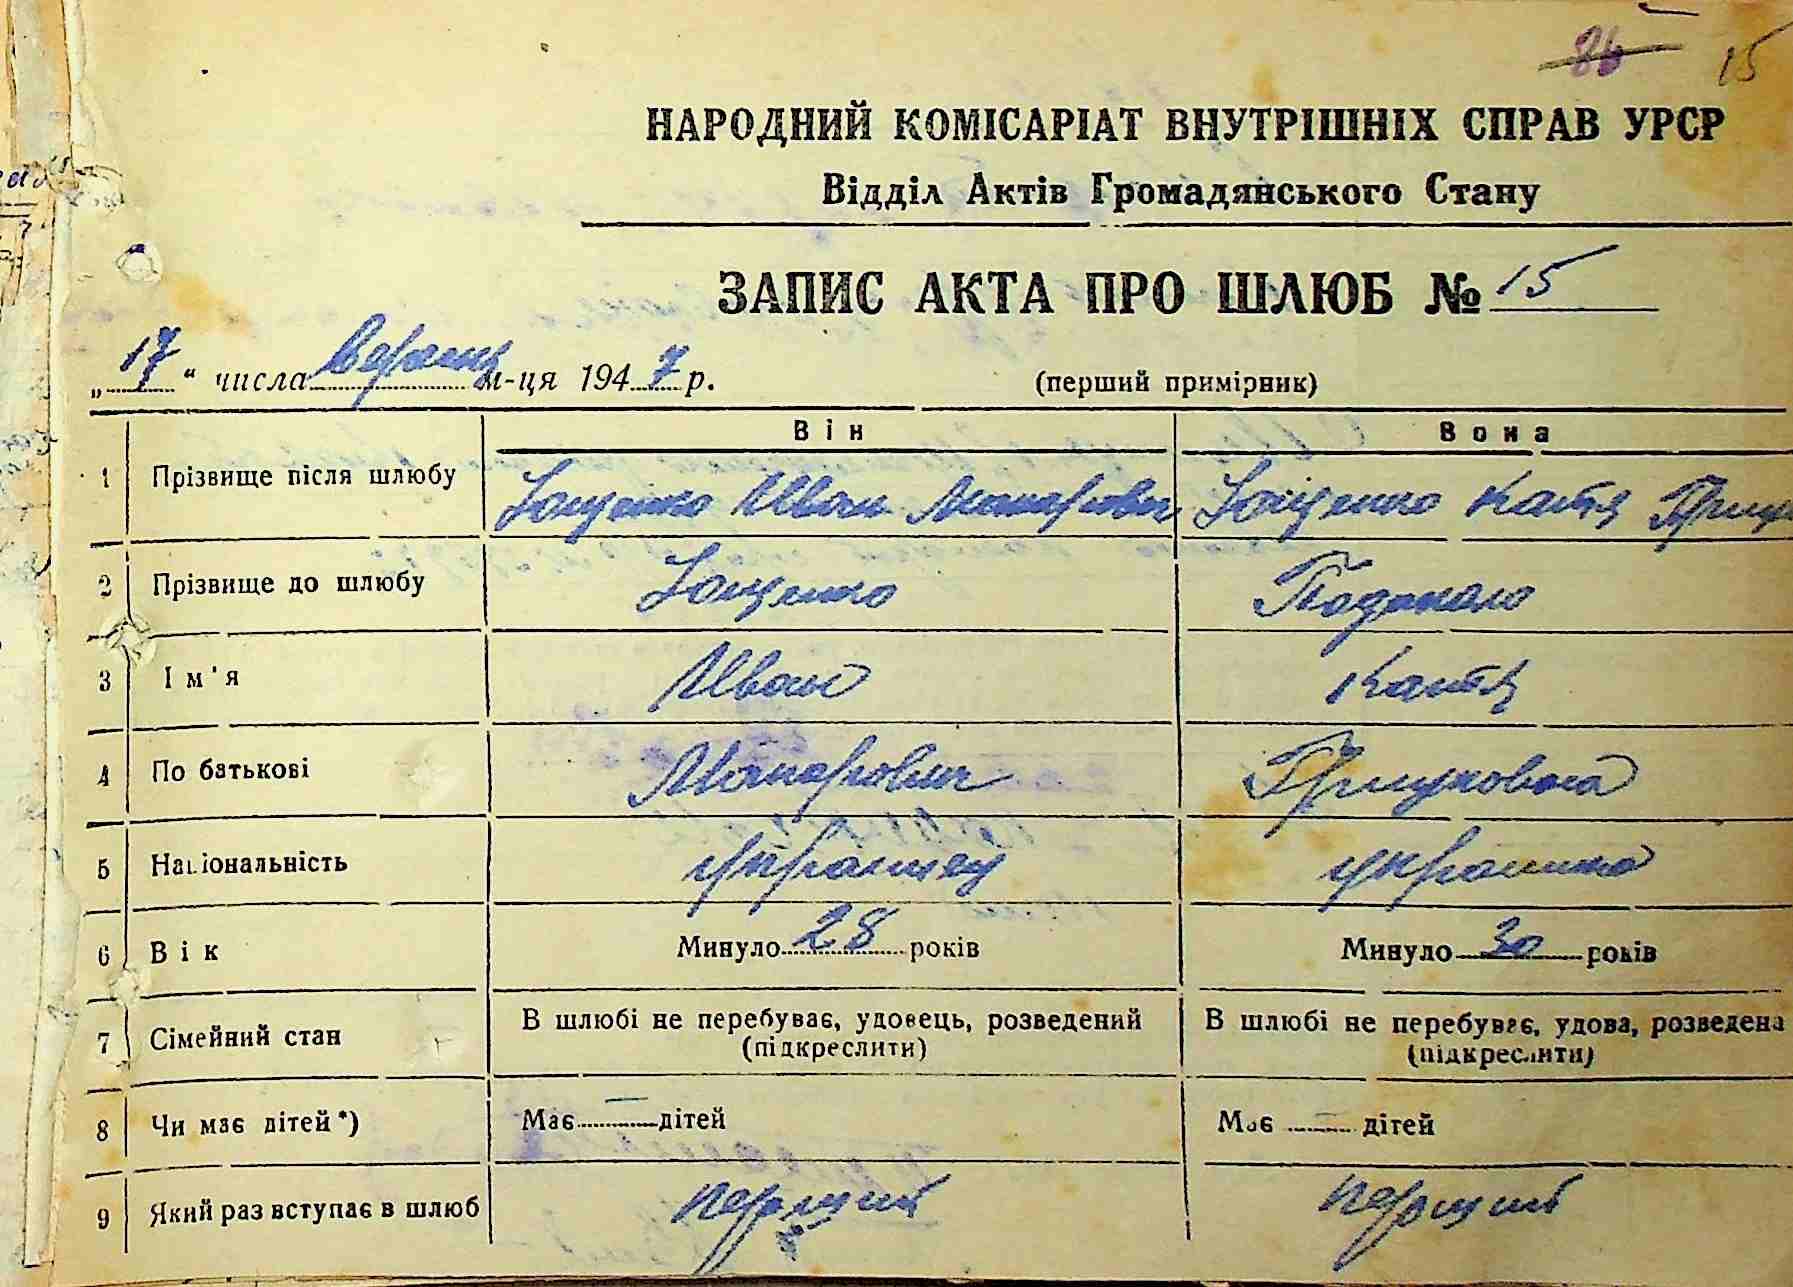 86 15
НАРОДНИЙ КОМІСАРІАТ ВНУТРІШНІХ СПРАВ УРСР
Відділ Актів Громадянського Стану
ЗАПИС АКТА ПРО ШЛЮБ № 15
„17“ числа вересня м-ця 1947 р. (перший примірник)
Він Вона
1 Прізвище після шлюбу Ющенко Иван Макарович Ющенко Катя
2 Прізвище до шлюбу Ющенко
3 Ім'я Иван Катя
4 По батькові Макарович
5 Національність українец українка
6 Вік Минуло 28 років Минуло 30 років
7 Сімейний стан В шлюбі не перебуває, удовець, розведений В шлюбі не перебуває, удова, розведена
(підкреслити) (підкреслити)
8 Чи має дітей *) Має — дітей Має — дітей
9 Який раз вступає в шлюб перший перший